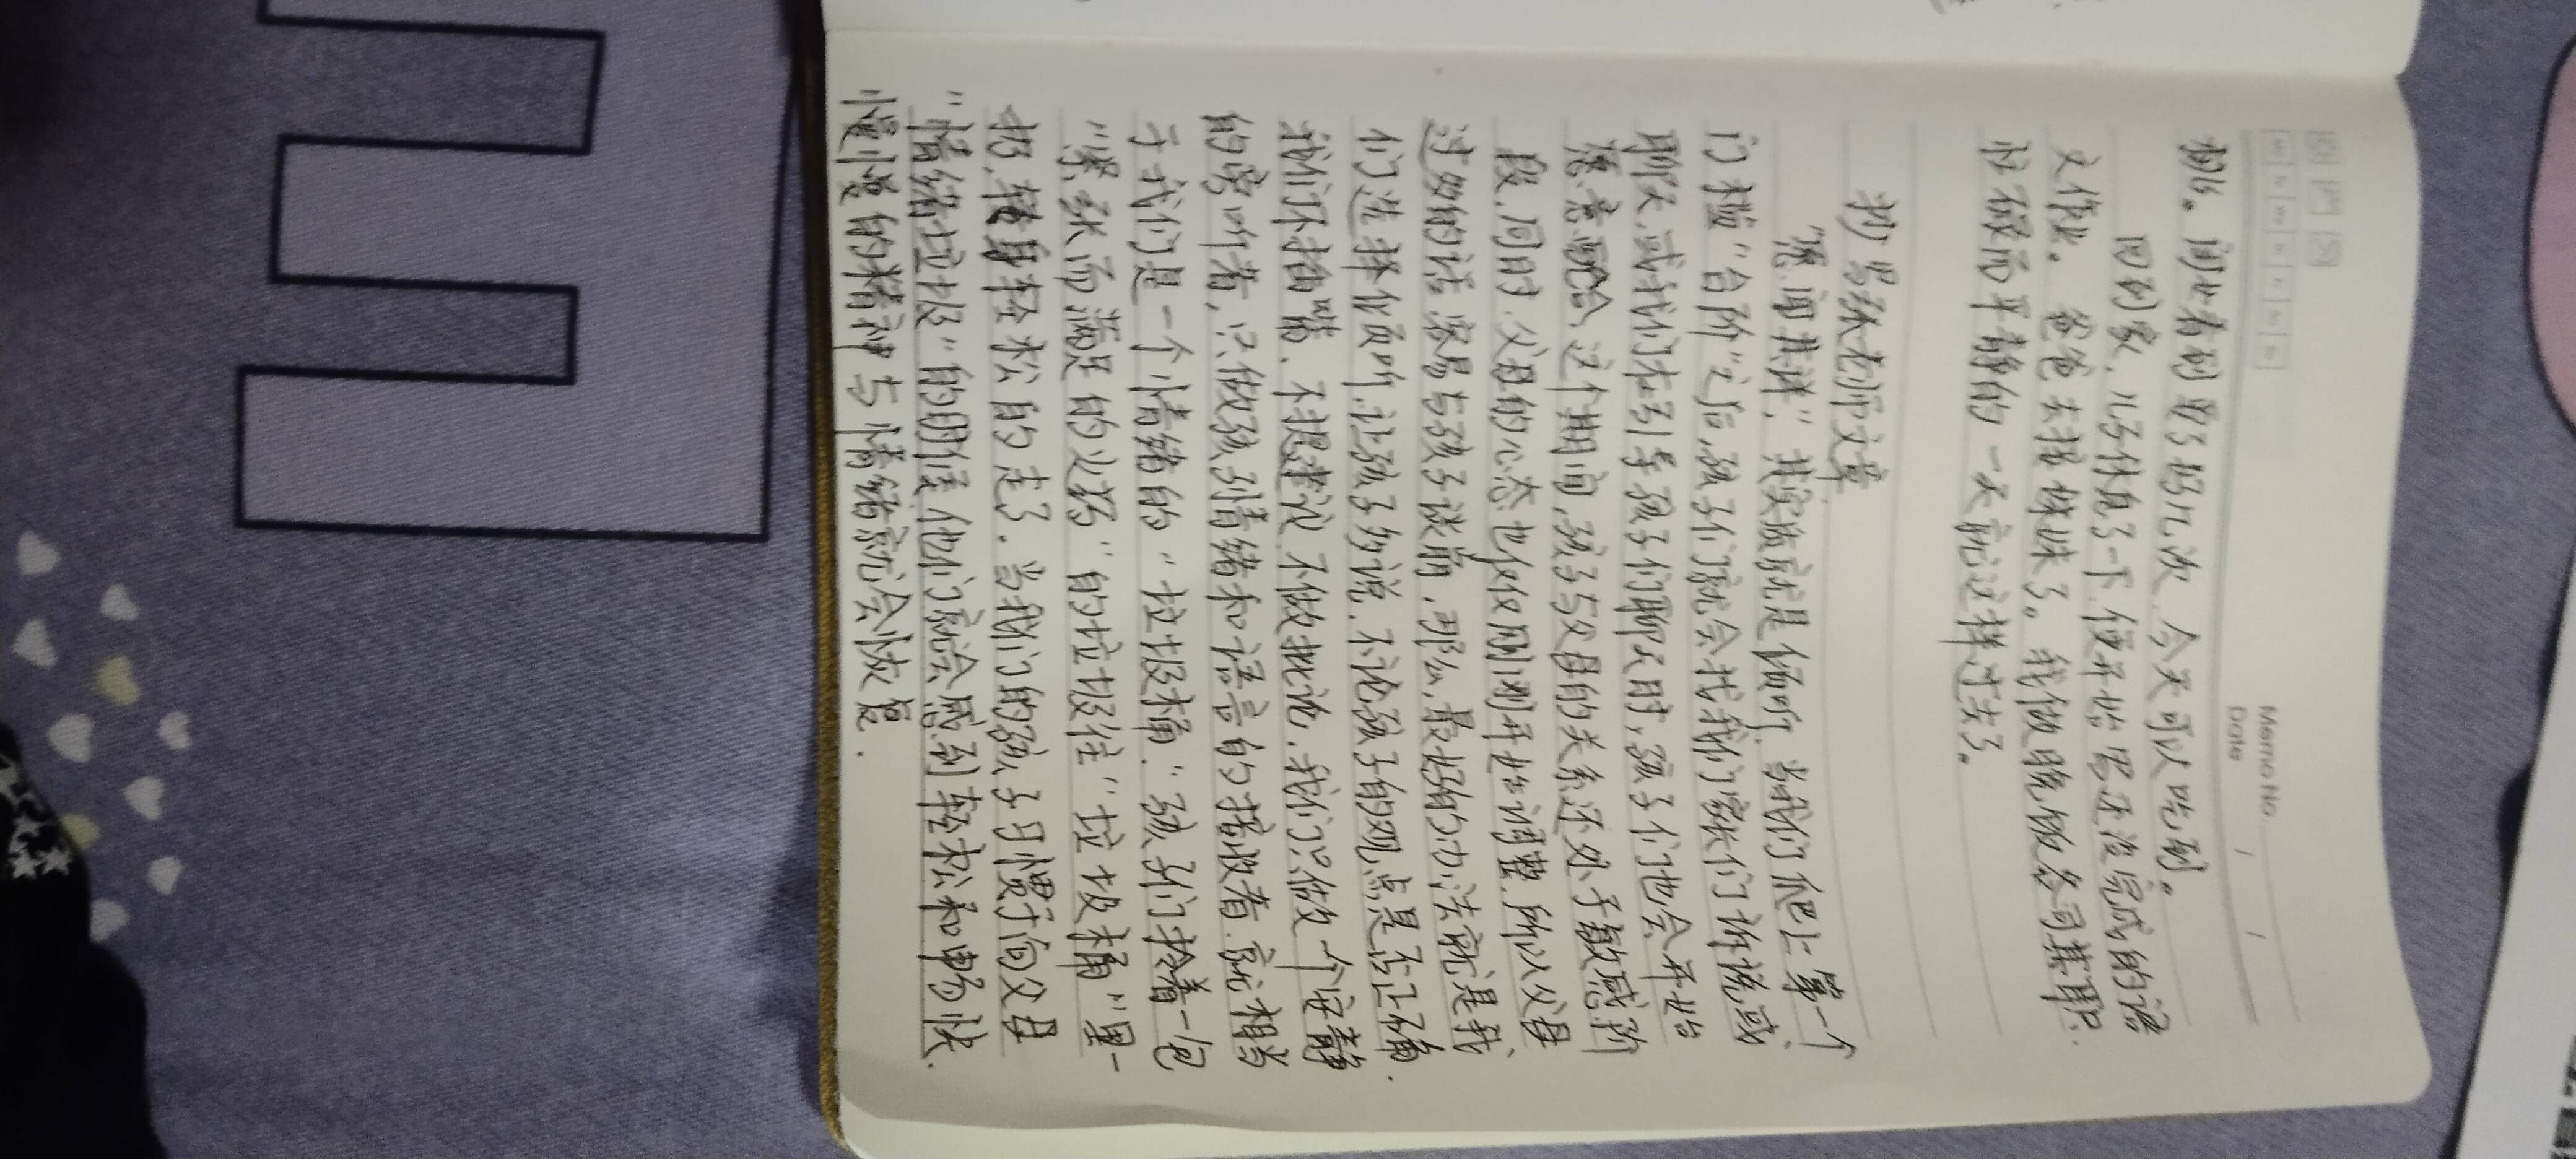 Memo No.
Date / /
极。闺女看到要了好几次,今天可以吃到。
回到家,儿子休息了一下便开始写还没完成的语
文作业。爸爸去接妹妹了。我做晚饭各司其职.
忙碌而平静的一天就这样过去了。
抄写张老师文章
"愿闻其详",其实也就是倾听.当我们爬上第一个
门槛"台阶"之后,孩子们就会找我们家长们诉说或
聊天.或我们在引导孩子们聊天时,孩子们也会开始
愿意配合.这个期间,孩子与父母的关系还处于敏感阶
段.同时.父母的心态也仅仅刚刚开始调整.所以父母
过多的话.容易与孩子谈崩,那么,最好的办法就是我
们选择倾听,让孩子多说.不论孩子的观点是否正确.
我们不插嘴、不提建议.不做批论.我们只做一个安静
的旁听者,只做孩子情绪和语言的接收者.就相当
于我们是一个情绪的"垃圾桶."孩子们拎着一包
"紧张而满足的火药"的垃圾往"垃圾桶"里一
扔.转身轻松的走了.当我们的孩子习惯于向父母
"情绪垃圾"的时候,他们就会感到轻松和畅快.
慢慢的精神与情绪就会恢复.